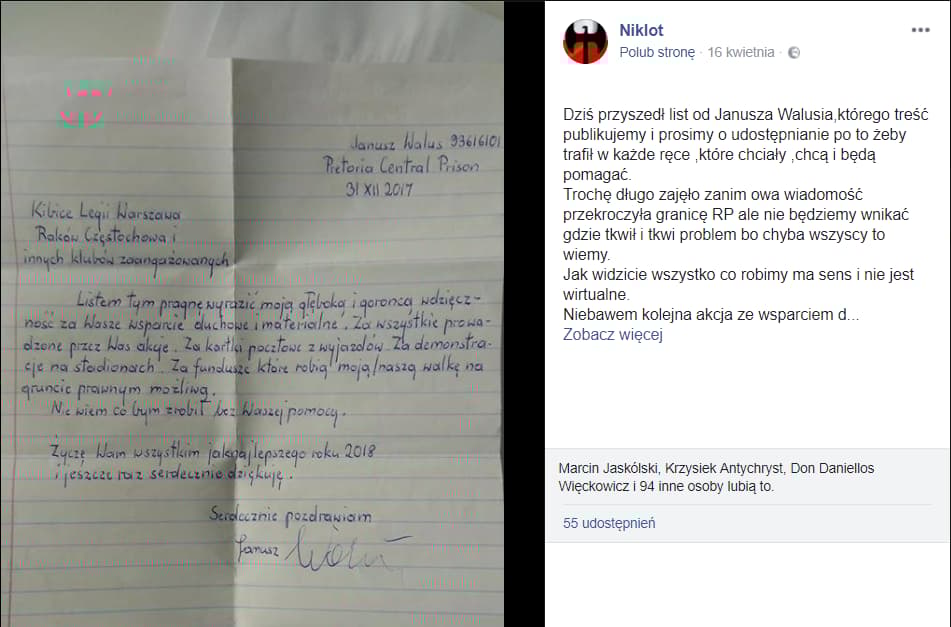 Janusz Walus 93616101
Pretoria Central Prison
31 XII 2017
Kibice Legii Warszawa
Raków Częstochowa i
innych klubów zaangażowanych
Listem tym pragnę wyrazić moją głęboką i goroncą wdzięcz-
ność za Wasze wsparcie duchowe i materialne. Za wszystkie prowa-
dzone przez Was akcje. Za kartki pocztowe z wyjazdów. Za demonstra-
cje na stadionach. Za fundusze które robią moją/naszą walkę na
gruncie prawnym możliwą.
Nie wiem co bym zrobił bez Waszej pomocy.
Życzę Wam wszystkim jaknajlepszego roku 2018
i jeszcze raz serdecznie dziękuję.
Serdecznie pozdrawiam
Janusz Waluś
Niklot
Polub stronę · 16 kwietnia ·
Dziś przyszedł list od Janusza Walusia,którego treść
publikujemy i prosimy o udostępnianie po to żeby
trafił w każde ręce ,które chciały ,chcą i będą
pomagać.
Trochę długo zajęło zanim owa wiadomość
przekroczyła granicę RP ale nie będziemy wnikać
gdzie tkwił i tkwi problem bo chyba wszyscy to
wiemy.
Jak widzicie wszystko co robimy ma sens i nie jest
wirtualne.
Niebawem kolejna akcja ze wsparciem d...
Zobacz więcej
Marcin Jaskólski, Krzysiek Antychryst, Don Daniellos
Więckowicz i 94 inne osoby lubią to.
55 udostępnień